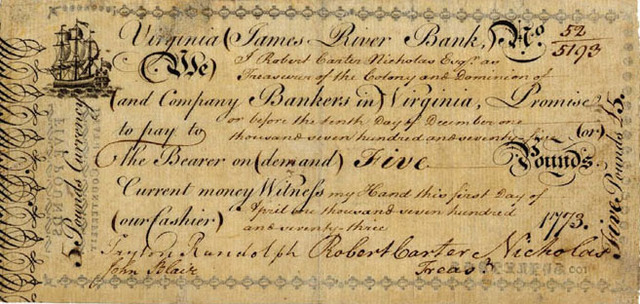 Virginia (James River Bank, No. 52
5193
(We) I Robert Carter Nicholas Esqr. as
Treasurer of the Colony and Dominion of
(and Company Bankers in) Virginia, Promise
to pay to or before the tenth Day of December one
thousand seven hundred and seventy five (or)
the Bearer on (demand) Five Pounds
Current money Witness my Hand this first Day of
(our Cashier) April one thousand seven hundred
and seventy-three 1773.
Peyton Randolph Robert Carter Nicholas
John Blair Treasr.
5 Pounds Currency
FIVE POUNDS
Five Pounds £5.